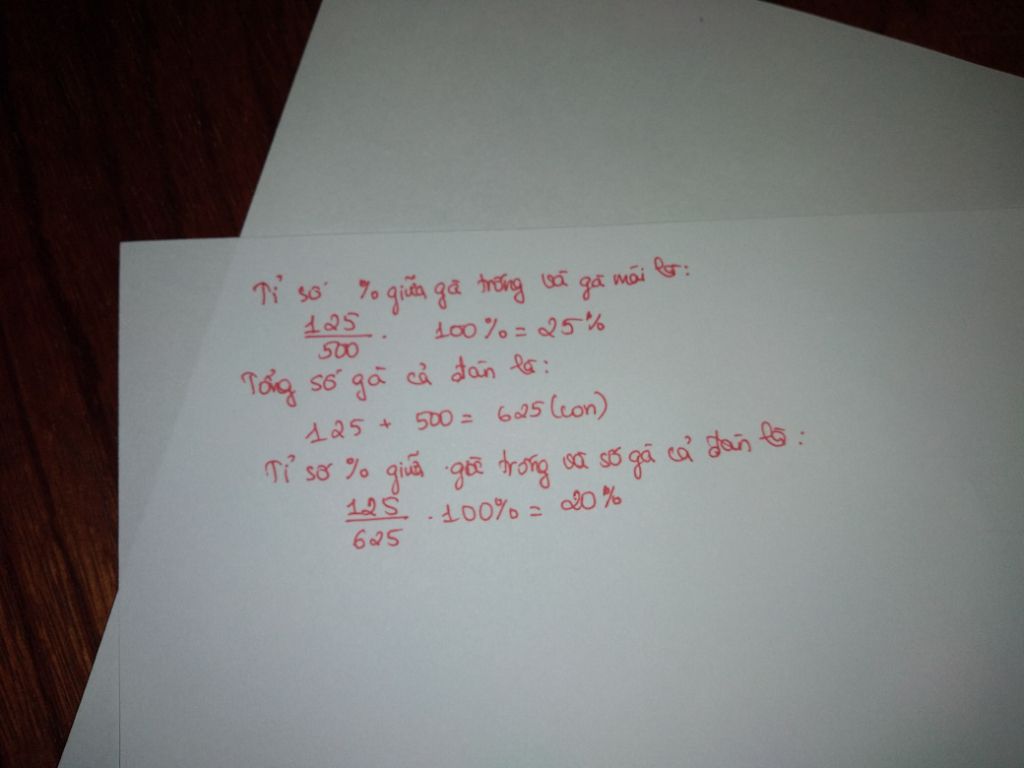 Tỉ số % giữa gà trống và gà mái là:
125/500 . 100% = 25%
Tổng số gà cả đàn là:
125 + 500 = 625 (con)
Tỉ số % giữa gà trống và số gà cả đàn là:
125/625 . 100% = 20%